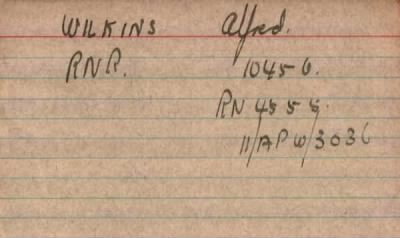 WILKINS Alfred.
RNR. 10456.
RN 4555.
11/AP W/3036